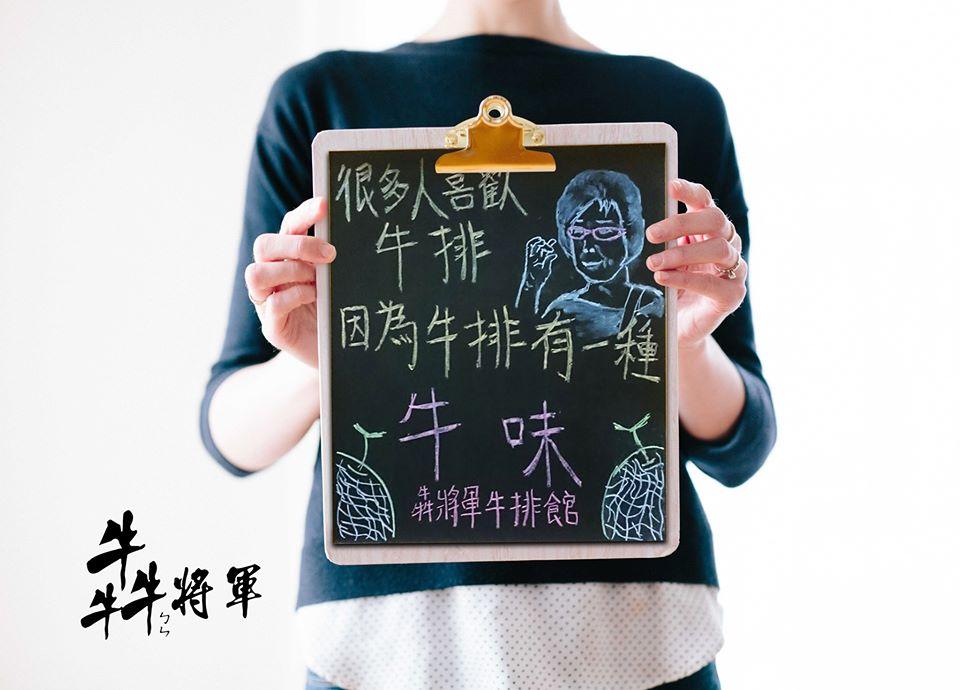 很多人喜歡
牛排
因為牛排有一種
牛 味
犇將軍牛排館
犇將軍
ㄅㄣ